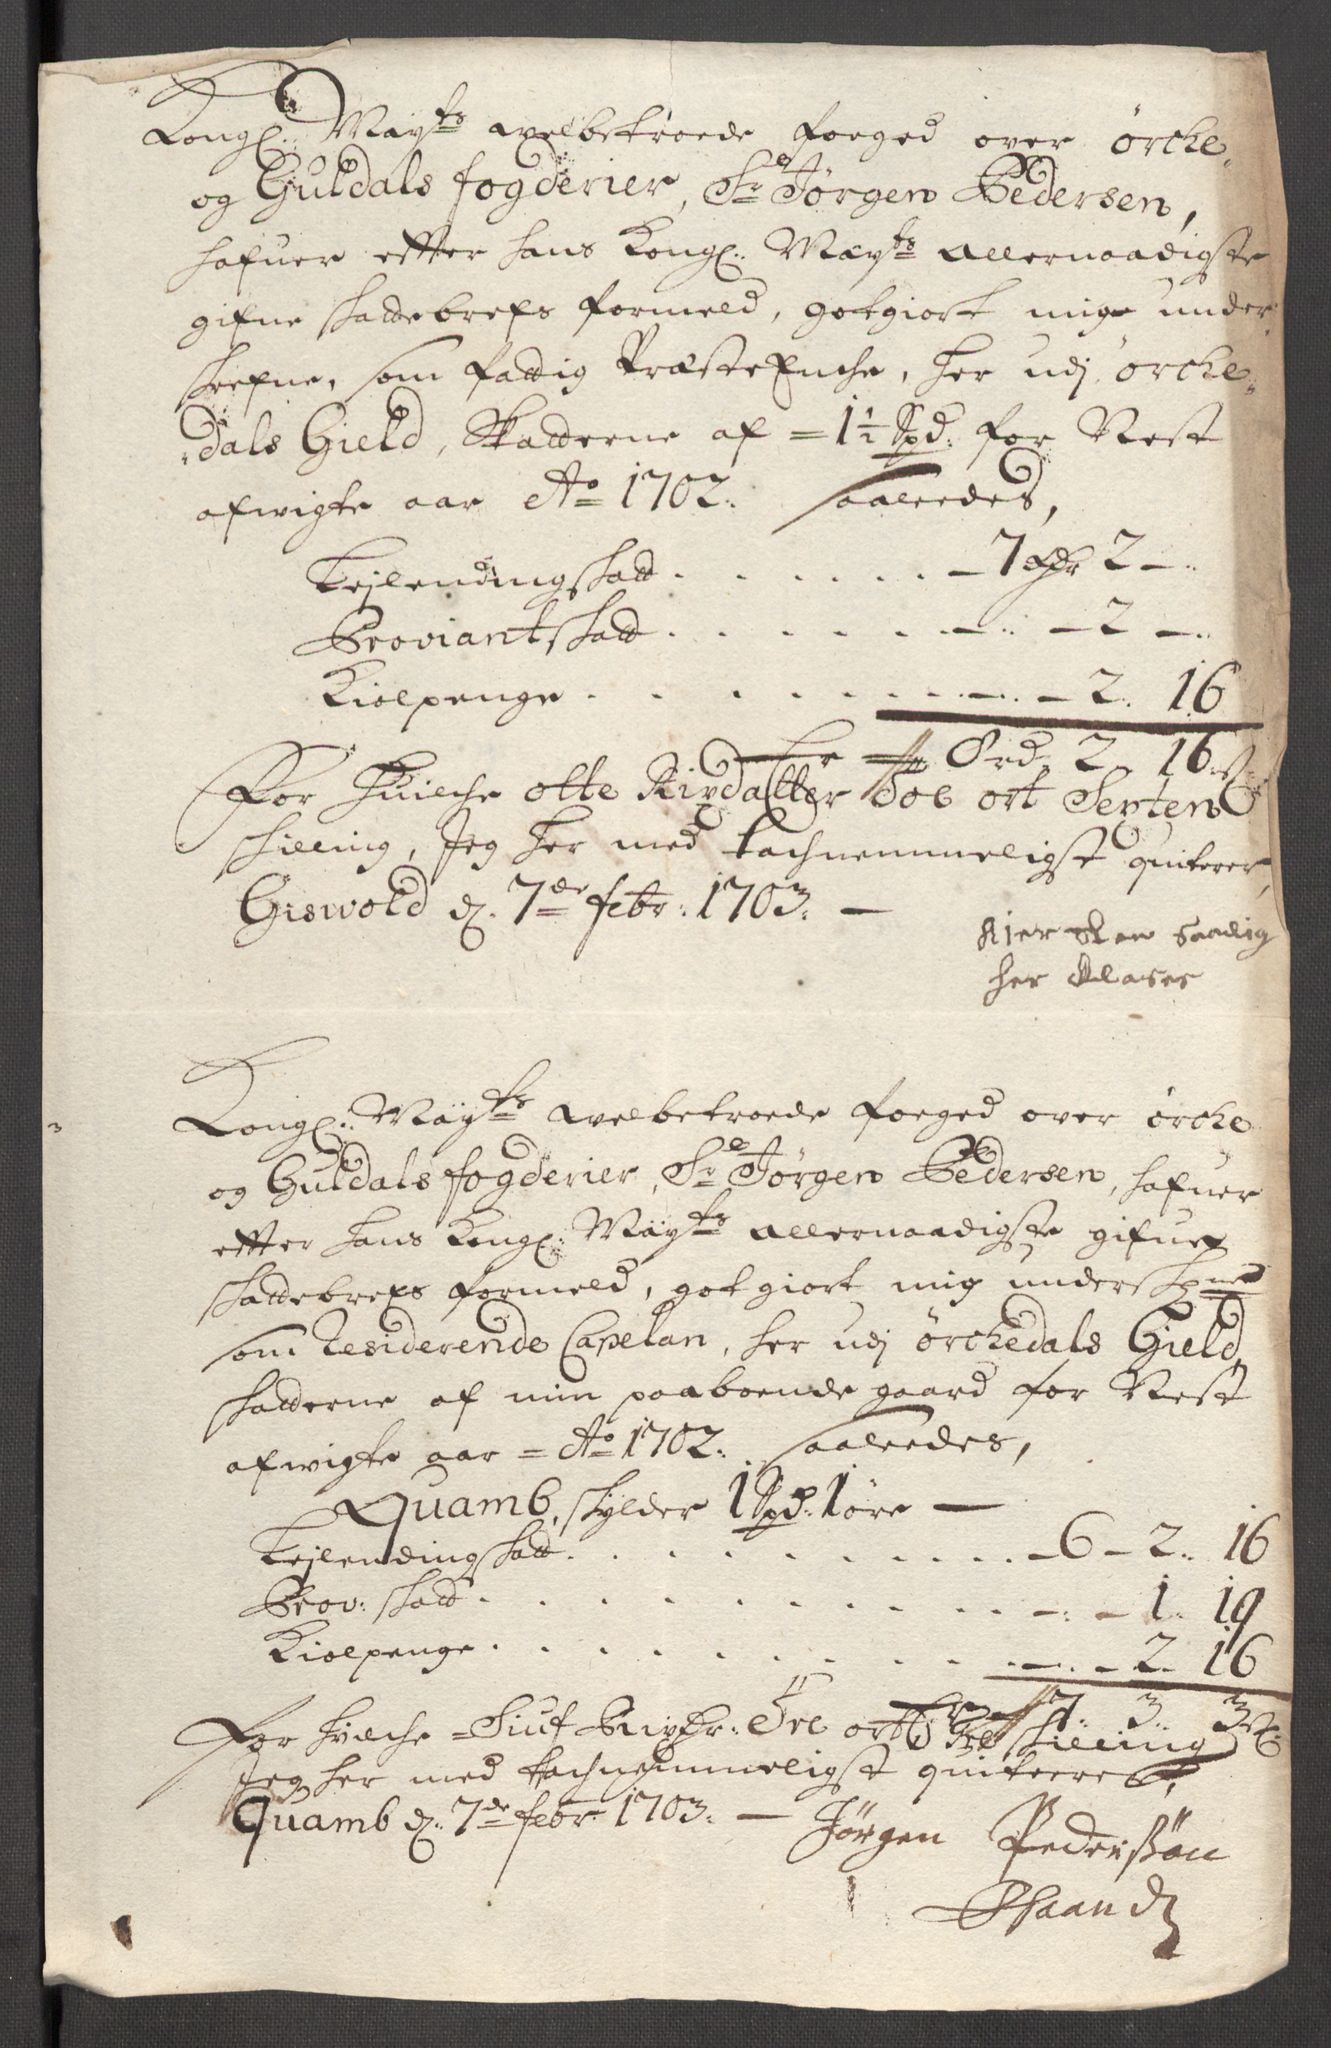 Kongl: Mayts welbetroede foeged over Örche-
og Guldals fogderier, Sr Jörgen Pedersen,
hafuer effter hans Kongl: Mayts allernaadigste
gifne skattebrefs formeld, gotgiort mig under-
skrefne, som fattig Præste Enche, her udj Örche-
dals Gield, Skatterne af = 1½ Spd: for Nest
afwigte aar Ao 1702. saaledes,
Lejlendingskatt . . . . . . 7 Rdr 2 –
Proviantskatt . . . . . . – 2 –
Kiolpenge . . . . . . . – 2. 16
Er 8 Ord. 2. 16 s:
For huilche otte Rixdaller Toe ort Sexten
skilling, Jeg her med tachnemmeligst quiterer,
Giswold d. 7de febr: 1703. –
her Clases
Kongl: Mayts welbetroede foeged over Örche
og Guldals fogderier, Sr Jörgen Pedersen, hafuer
effter hans Kongl: Mayts allernaadigste gifne
skattebrefs formeld, gotgiort mig undersk:ne
som Residerende Capelan, her udj Örchedals Gield,
skatterne af min paaboende gaard for Nest
afwigte aar = Ao 1702. saaledes,
Quamb, skylder 1 Spd: 1 öre –
Lejlendingskatt . . . . . . – 6 – 2. 16
Prov: skatt . . . . . . . – 1. 19
Kiolpenge . . . . . . . – 2. 16
Er 7. 3. 3 s:
For huilche Siuf Rixdr: Tre ort Tre skilling
Jeg her med tachnemmeligst quiterer,
Quamb d. 7de febr 1703. – Jörgen Pederssön